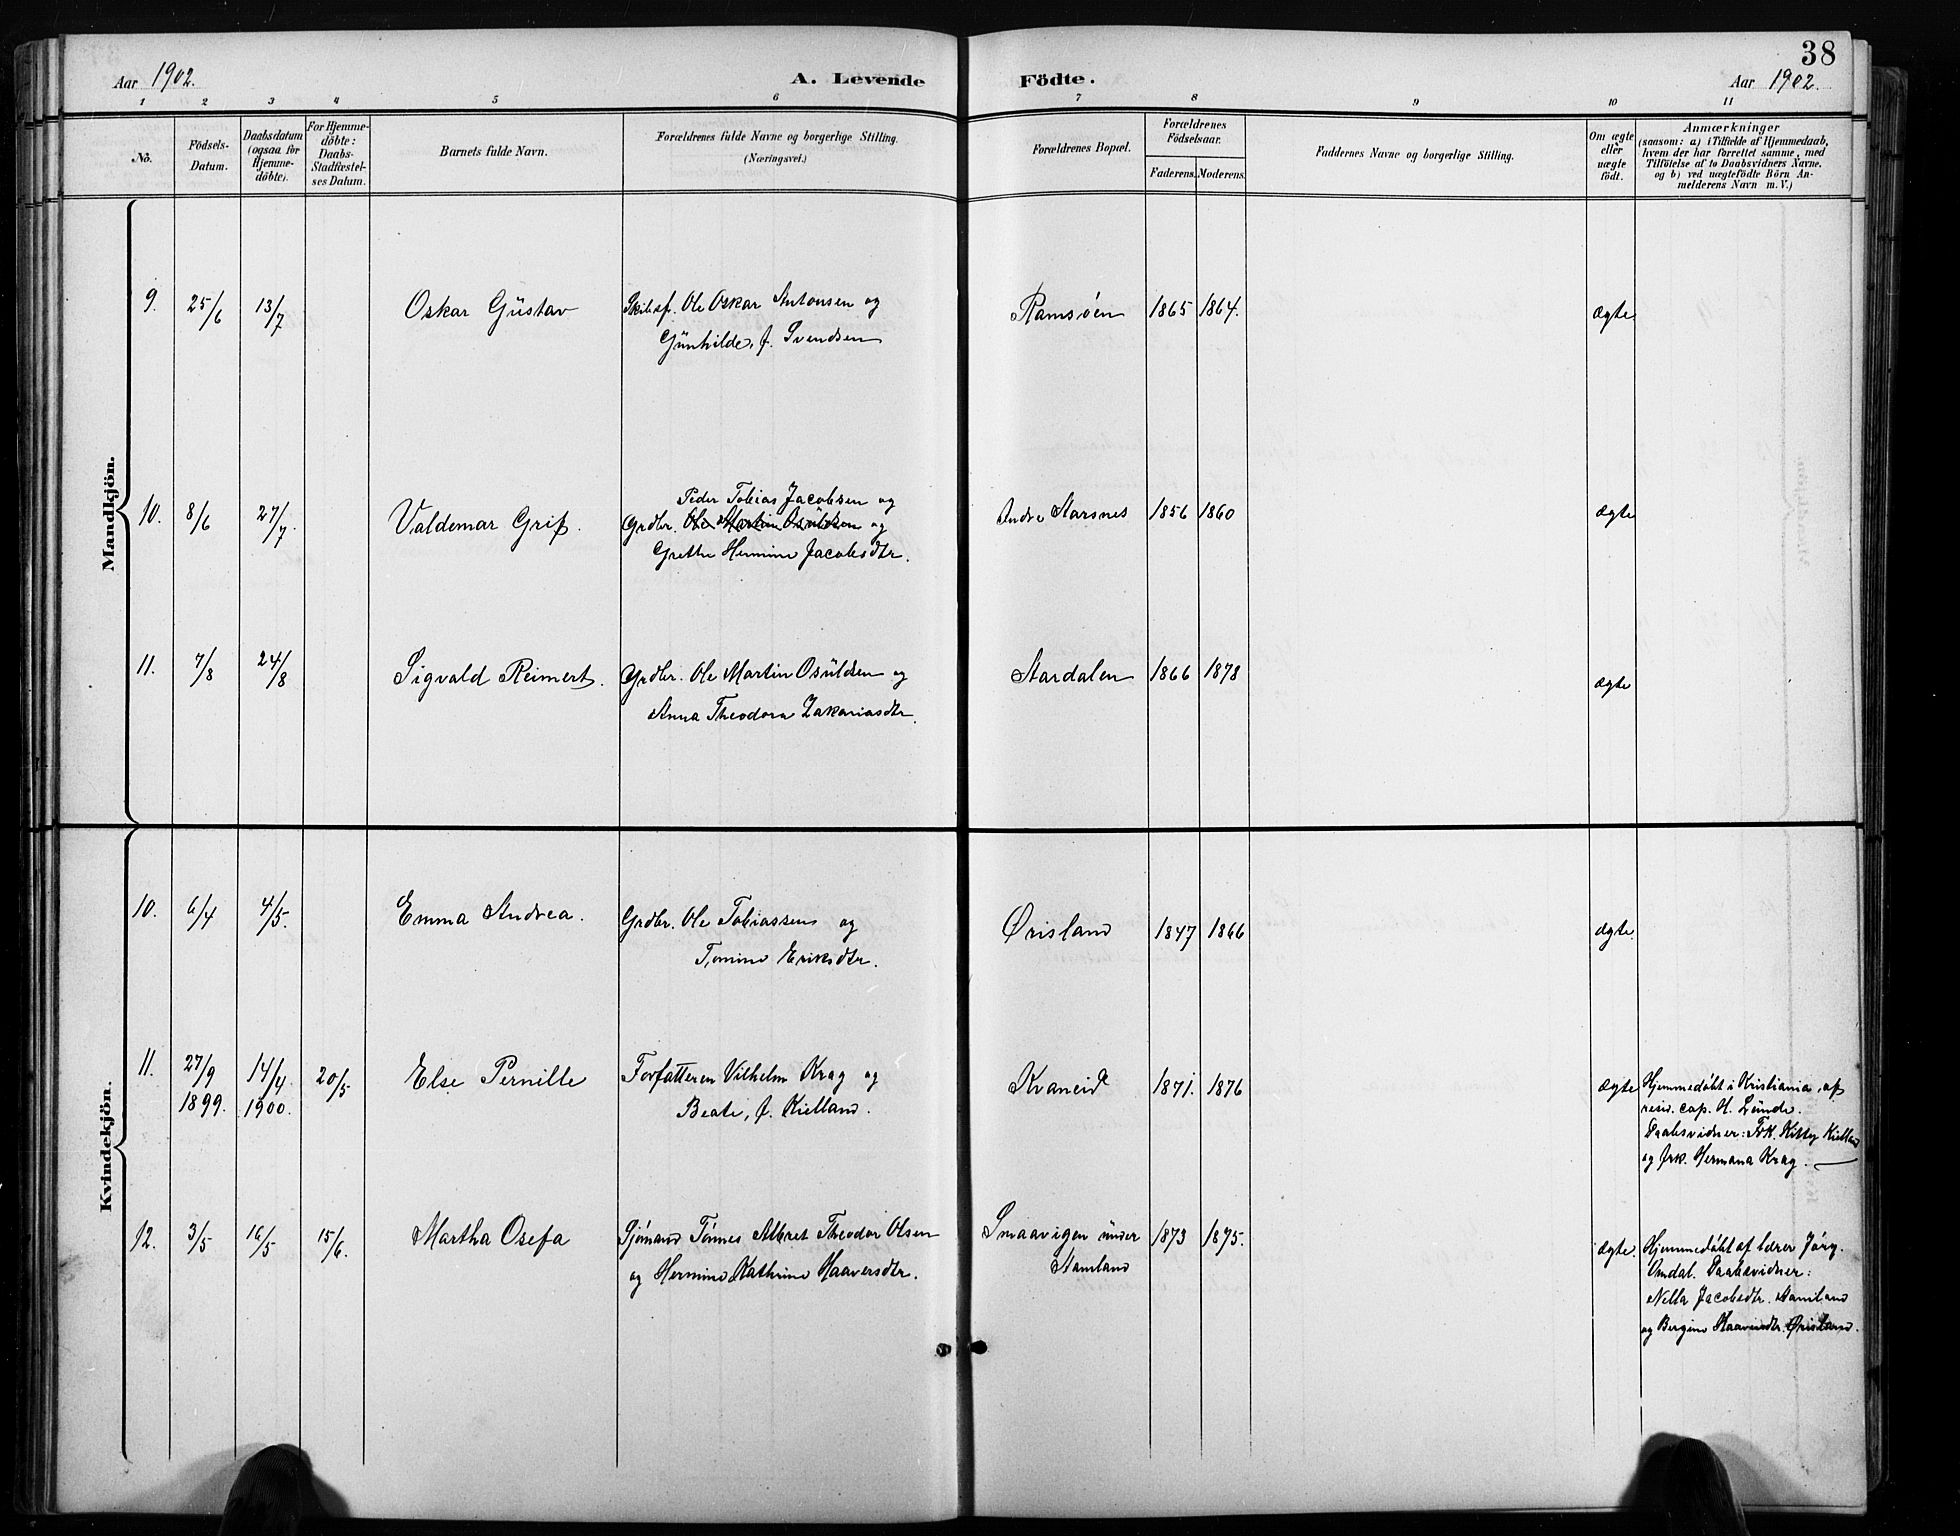 38
Aar 1902.
A. Levende Födte.
Aar 1902.
1 2 3 4 5 6 7 8 9 10 11
No.
Födsels-
Datum.
Daabsdatum
(ogsaa for
Hjemme-
döbte).
For Hjemme-
döbte:
Daabs-
Stadfæstel-
ses Datum.
Barnets fulde Navn.
Forældrenes fulde Navne og borgerlige Stilling.
(Næringsvei.)
Forældrenes Bopæl.
Forældrenes
Födselsaar.
Faderens. Moderens.
Faddernes Navne og borgerlige Stilling.
Om ægte
eller
uægte
födt.
Anmærkninger
(saasom: a) i Tilfælde af Hjemmedaab,
hvem der har forrettet samme, med
Tilföielse af to Daabsvidners Navne.
og b) ved uægtefödte Börn An-
melderens Navn m. V.)
Mandkjön.
9. 25/6 13/7 Oskar Gustav Skibsf. Ole Oskar Antonsen og Ramsöen 1865 1864. ægte.
Gunhilde, f. Svendsen
Peder Tobias Jacobsen og
10. 8/6 27/7 Valdemar Grip. Grdbr. Ole Martin Osuldsen og Andr. Starsnes 1856 1860 ægte
Grethe Hermine Jacobsdtr.
11. 7/8 24/8 Sigvald Reimert. Grdbr. Ole Martin Osuldsen og Stardalen 1866 1878 ægte
Anna Theodora Zakariasdtr.
Kvindekjön.
10. 6/4 4/5. Emma Andrea. Grdbr. Ole Tobiassen og Örisland 1847 1866 ægte.
Tomine Eriksdtr.
11. 27/9 1899. 14/4 1900. 20/5 Else Pernille Forfatteren Vilhelm Krag og Kvaneid 1871. 1876 ægte
Beate, f. Kielland.
Hjemmedöbt i Kristiania, af
resid. cap. H. Lunde.
Daabsvidner: Frk. Kitty Kielland
og frk. Hermana Krag.
12. 3/5 16/5 15/6. Martha Osefa Sjömand Tönnes Albret Theodor Olsen Smaavigen under 1873 1875. ægte.
og Hermine Kathrine Haaversdtr. Stamland
Hjemmedöbt af lærer Jörg.
Omdal. Daabsvidner:
Nella Jacobsdtr. Stamland
og Bergine Haaversdtr. Örisland.